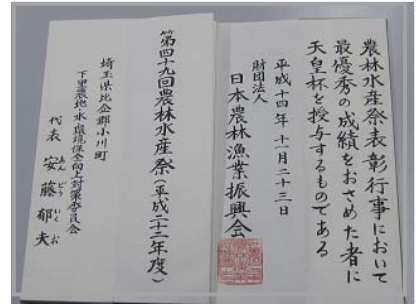 農林水産祭表彰行事において
最優秀の成績をおさめた者に
天皇杯を授与するものである
平成十四年十一月二十三日
財団法人
日本農林漁業振興会
第四十九回農林水産祭(平成二十二年度)
埼玉県比企郡小川町
下里農地・水・環境保全向上対策委員会
代表 安藤郁夫
あんどういくお